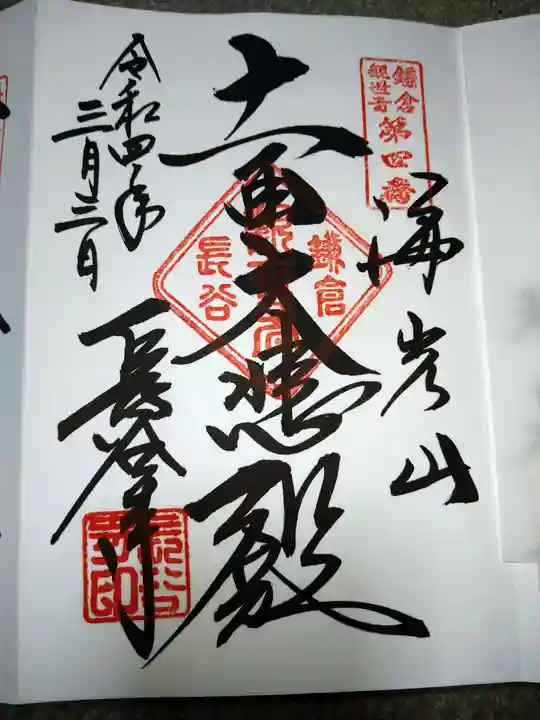 鎌倉
観世音
第四番
海光山
十一面大悲殿
鎌倉
長谷
長谷寺
令和四年
三月三日